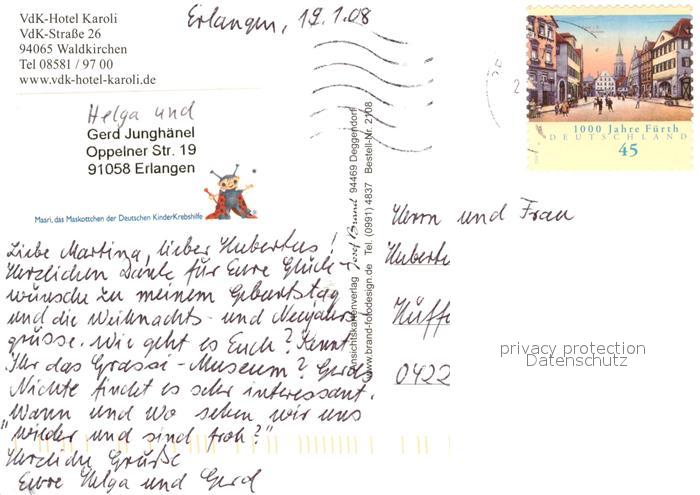 VdK-Hotel Karoli
VdK-Straße 26
94065 Waldkirchen
Tel 08581 / 97 00
www.vdk-hotel-karoli.de
Erlangen, 19.1.08
1000 Jahre Fürth
DEUTSCHLAND
45
Helga und
Gerd Junghänel
Oppelner Str. 19
91058 Erlangen
Maari, das Maskottchen der Deutschen KinderKrebshilfe
Liebe Martina, lieber Hubertus!
Herzlichen Dank für Eure Glück-
wünsche zu meinem Geburtstag
und die Weihnachts- und Neujahrs-
grüsse. Wie geht es Euch? Kennt
Ihr das Grassi-Museum? Gerds
Nichte findet es sehr interessant.
Wann und wo sehen wir uns
"wieder und sind froh?"
Herzliche Grüße
Eure Helga und Gerd
Ansichtskartenverlag Josef Brand 94469 Deggendorf
www.brand-fotodesign.de Tel. (0991) 4837 Bestell-Nr. 2108
Herrn und Frau
Huberte
Hüff
0422
privacy protection
Datenschutz